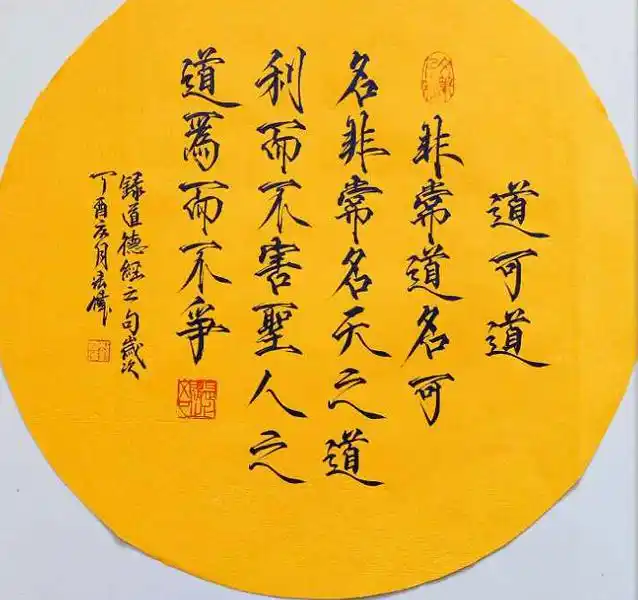 道可道
非常道名可
名非常名天之道
利而不害聖人之
道為而不爭
録道德經之句歲次
丁酉亥月